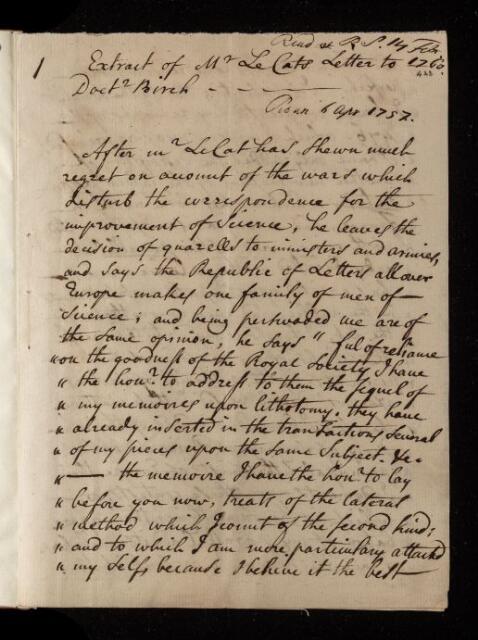 Read at R. S. 14 Feb.
1 Extract of Mr Le Cats Letter to 1760.
Doctr Birch - - —
Rouen 6 Apr 1757.
After mr Le Cat has shewn much
regret on account of the wars which
disturb the correspondence for the
improvement of Science, he leaves the
decision of quarells to ministers and armies,
and says the Republic of Letters all over
Europe makes one family of men of
Science; and being perswaded we are of
the same opinion, he says " ful of reliance
" on the goodness of the Royal Society I have
" the honr. to address to them the sequel of
" my memoires upon lithotomy. they have
" already inserted in the transactions several
" of my pieces upon the same subject. &c.
" — the memoire I have the honr. to lay
" before you now, treats of the lateral
" method which I count of the second kind;
" and to which I am more particulary attachd
" my self, because I believe it the best